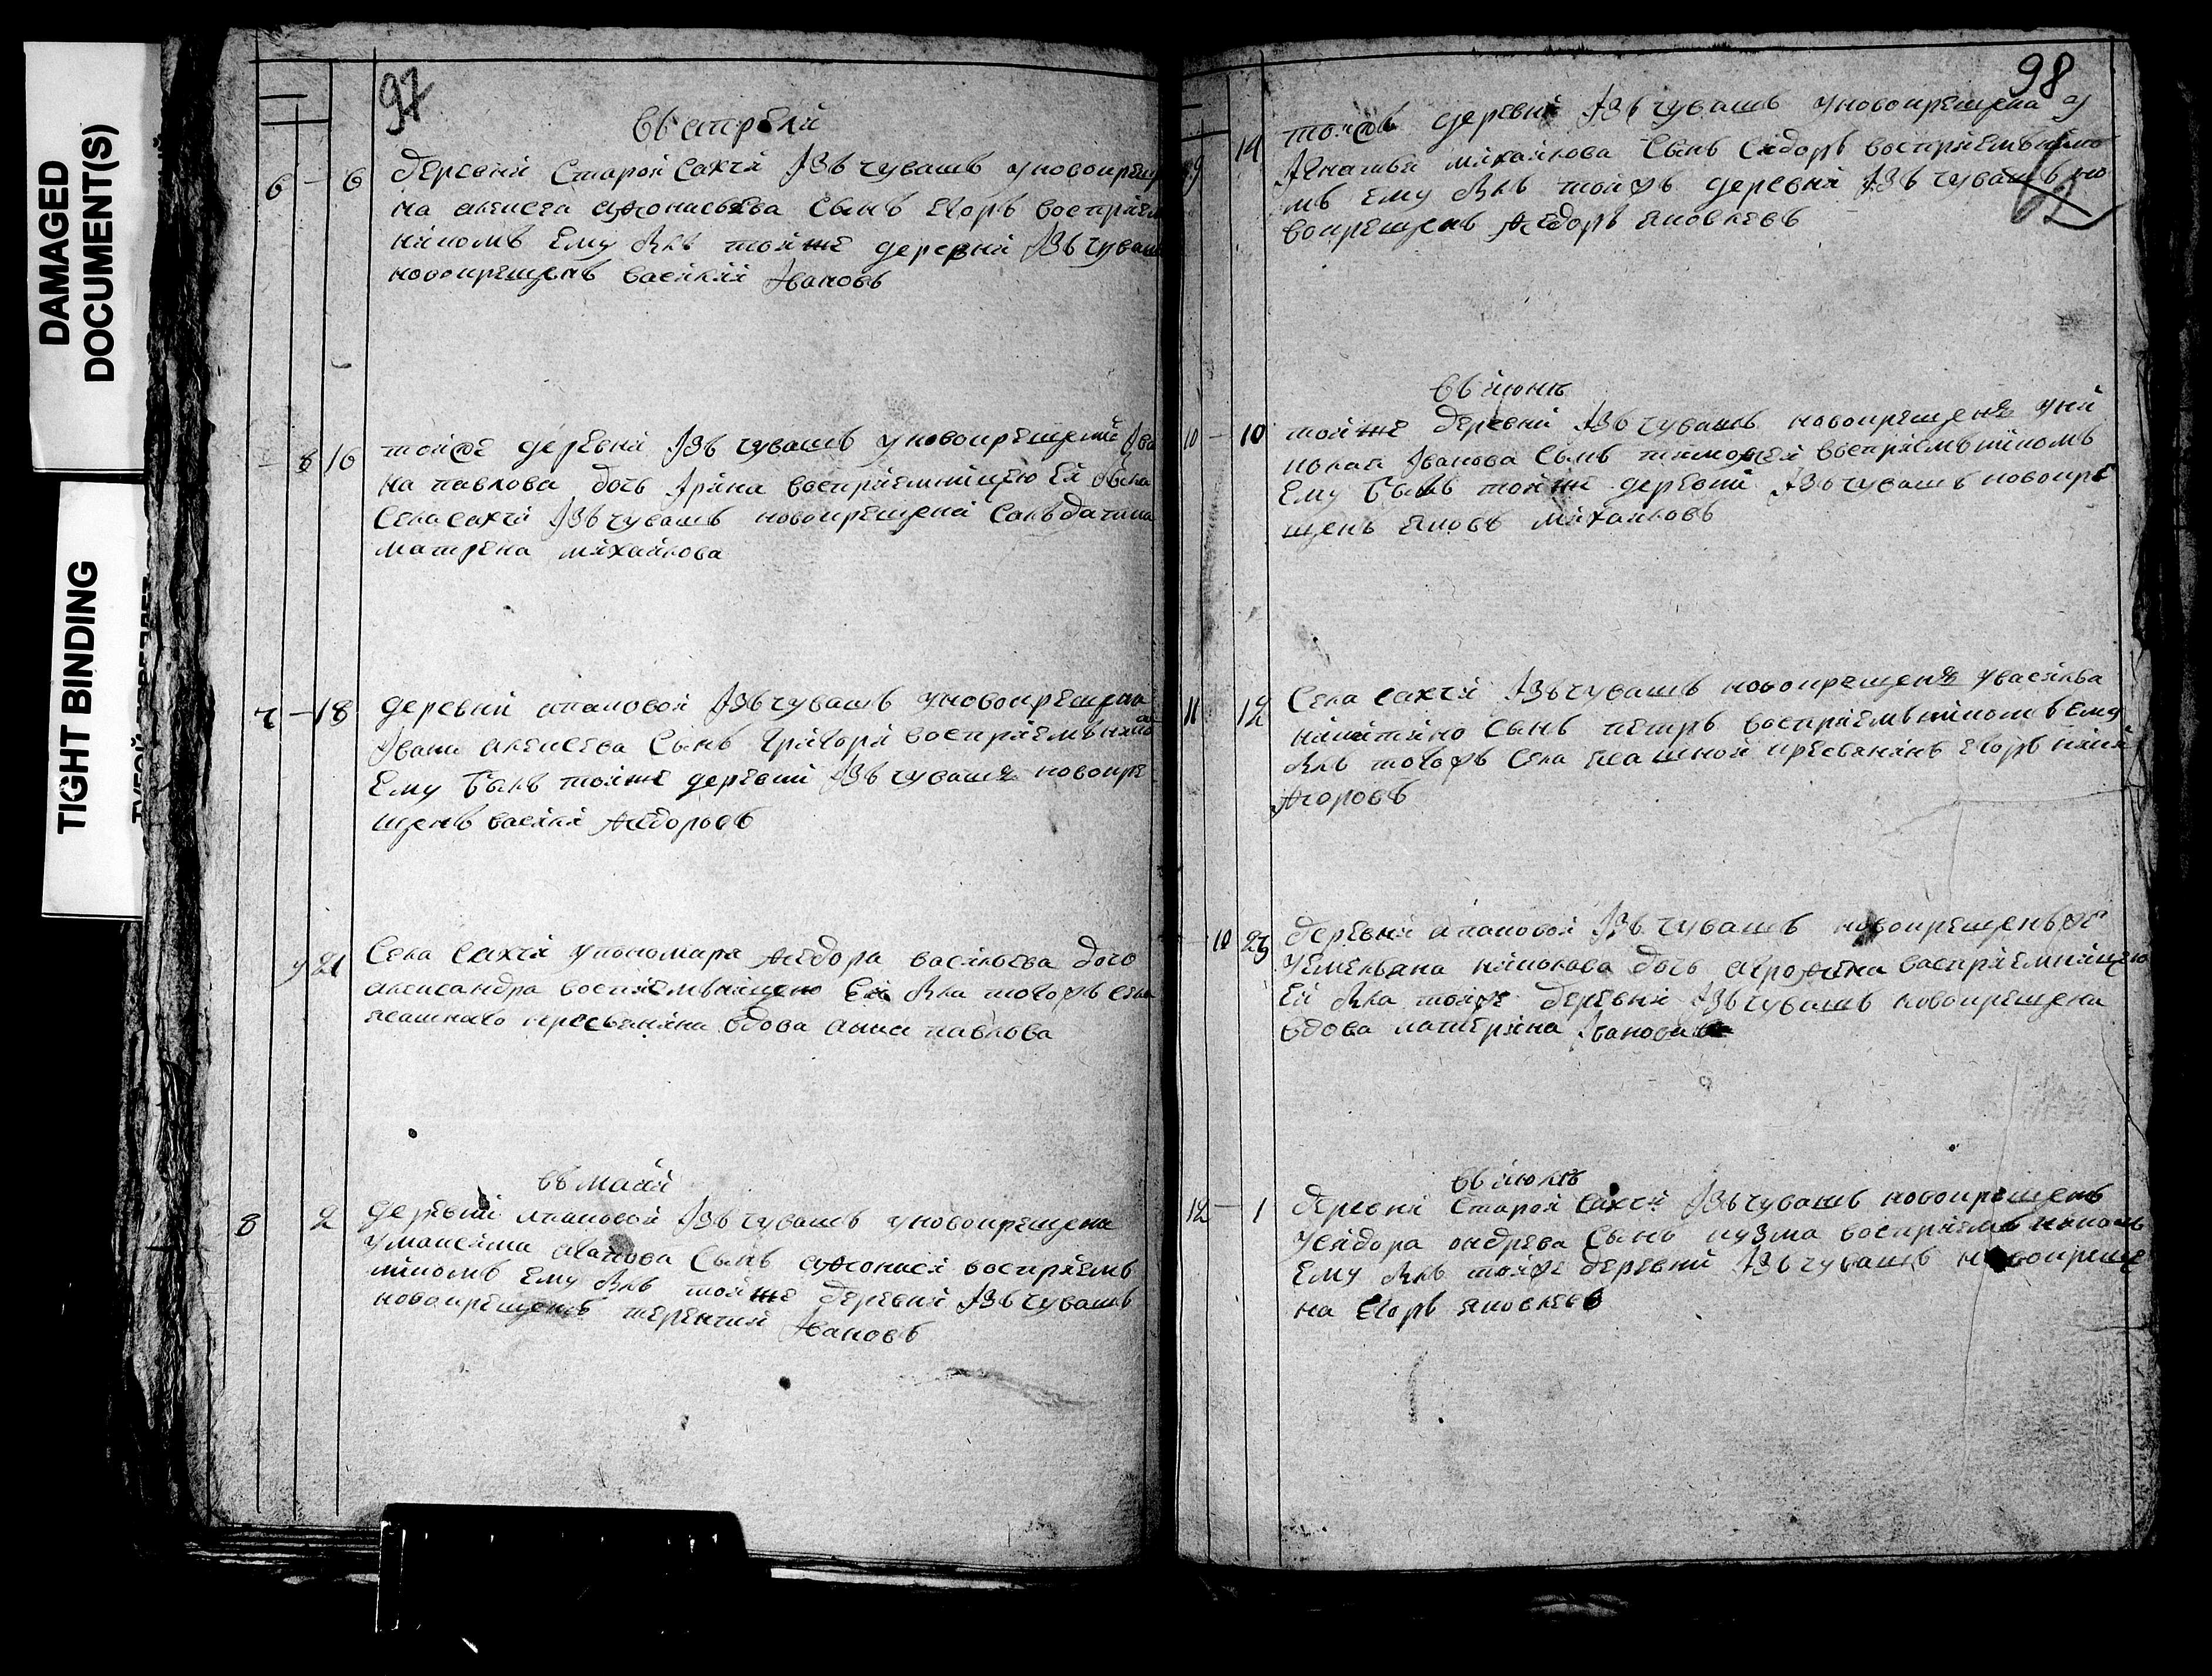 DAMAGED
DOCUMENT(S)
TIGHT BINDING
97
въ апрели
6 – 6 деревни старой сахчи изъ чувашъ у новокреще
на алексея афонасьева сынъ егоръ восприем
никомъ ему былъ тойже деревни изъ чуваш
новокрещенъ василии ивановъ
– 8 16 тойже деревни изъ чувашъ у новокрещена ива
на павлова дочь ирина восприемницею ей была
села сахчи изъ чувашъ новокрещена салъдатка
матрена михайлова
7 – 18 деревни апаковой изъ чувашъ у новокрещена
ивана алексеева сынъ григори восприемънико
ему былъ тойже деревни изъ чувашъ новокре
щенъ василей федорьовъ
9 21 села сахчи у пономаря федора васильева дочь
александра восприемъницею ей была тогожъ села
ясашнаго кресьянина вдова анна павлова
въ маии
8 2 деревни апаковой изъ чувашъ у новокрещена
у максима сынъ афонаси восприемъ
никомъ ему былъ тойже деревни изъ чувашъ
новокрещенъ терентий ивановъ
98
9 14 тойжъ деревни изъ чувашъ у новокрещена у
игнатья михайлова сынъ сидоръ восприемънико
мъ ему былъ тойжъ деревни изъ чувашъ но
вокрещенъ федоръ яковлевъ
въ июнѣ
10 – 10 тойже деревни изъ чувашъ новокрещена уни
колая иванова сынъ тимофей восприемъникомъ
ему былъ тойже деревни изъ чувашъ новокре
щенъ яковъ михайловъ
11 12 села сахчи изъ чувашъ новокрещена у василья
никитино сынъ петръ восприемъникомъ ему
былъ тогожъ села ясашной кресьянинъ егоръ
10 23 деревни апаковой изъ чувашъ новокрещенъже
уемельяна дочь агрофина восприемницею
ей была тойже деревни изъ чувашъ новокрещена
вдова катерина иванова
въ июлѣ
12 – 1 деревни старой сахчи изъ чувашъ новокрещенъ
усидора андрева сынъ кузма восприемъникомъ
ему былъ тойже деревни изъ чувашъ новокреще
на егоръ яковлевъ